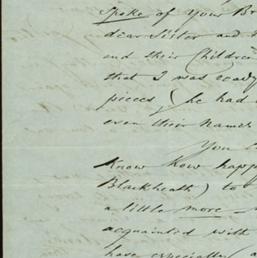 Spoke of your Br
dear Sister and
and their Children
that I was ready
pieces, he had
even their names
You
know how happ
Blackheath) to
a little more
acquainted with
have especially